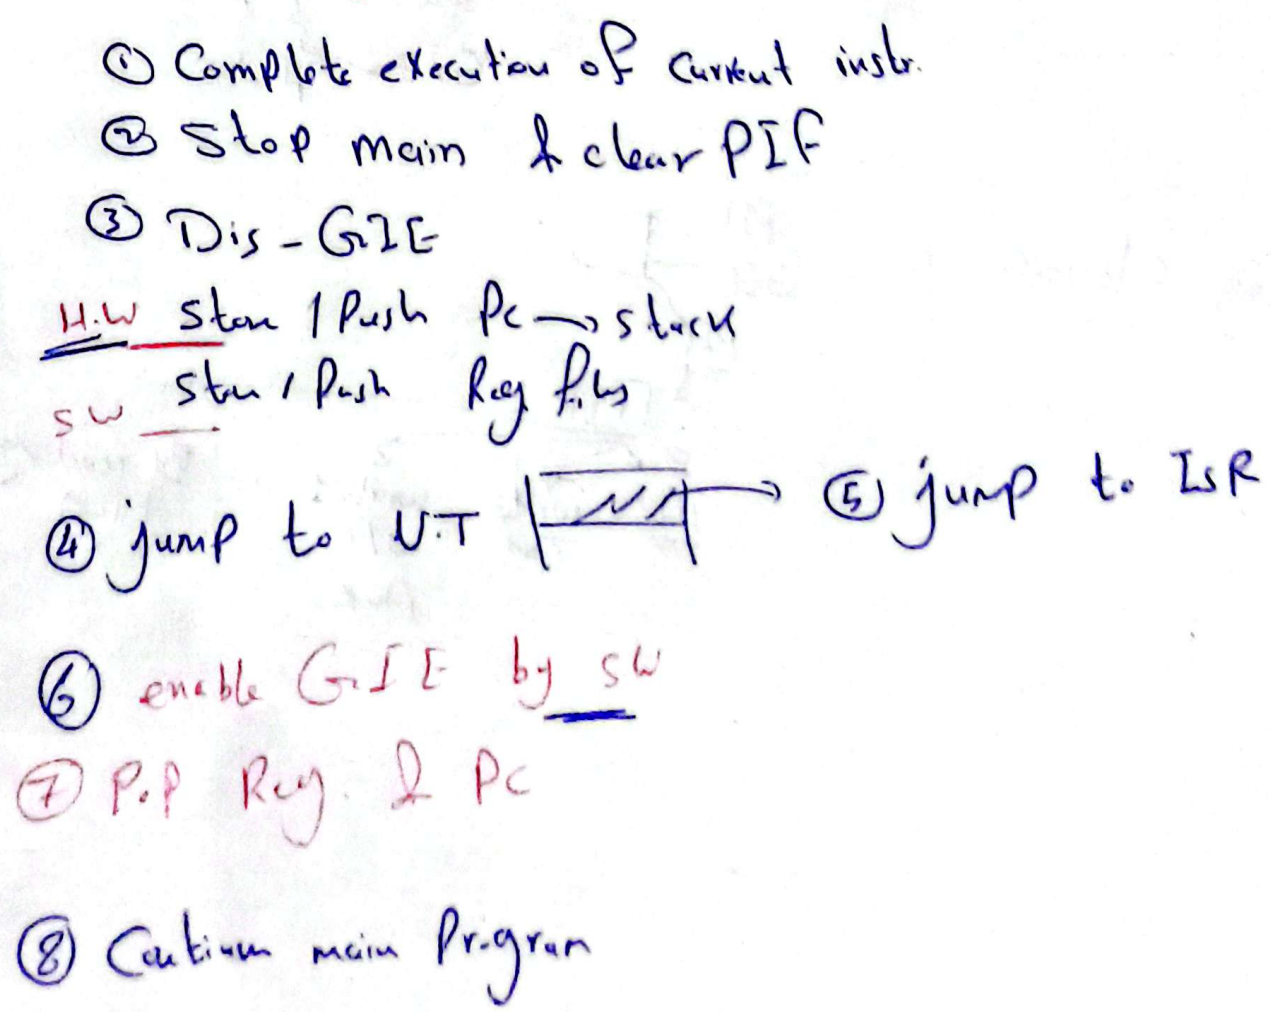 ① Complete execution of current instr.
② Stop main & clear PIF
③ Dis - GIE
H.W Store / Push PC → stack
SW Store / Push Reg files
④ jump to V.T → ⑤ jump to ISR
⑥ enable GIE by SW
⑦ Pop Reg. & PC
⑧ Continue main Program